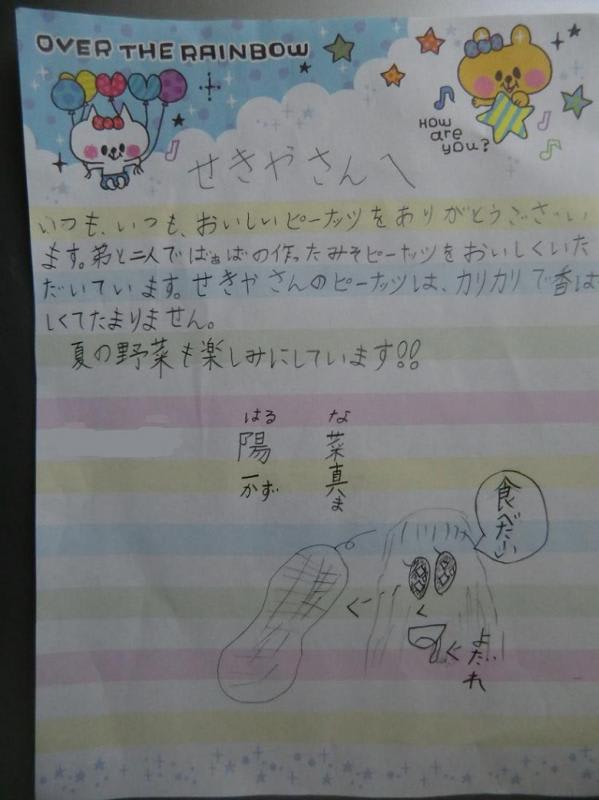 OVER THE RAINBOW
HOW
are
you?
せきやさんへ
いつも、いつも、おいしいピーナッツをありがとうござい
ます。弟と二人でばぁばの作ったみそピーナッツをおいしくいた
だいています。せきやさんのピーナッツは、カリカリで香ば
しくてたまりません。
夏の野菜も楽しみにしています!!
はる な
陽 菜
一 真
かず ま
食べたい
よだれ